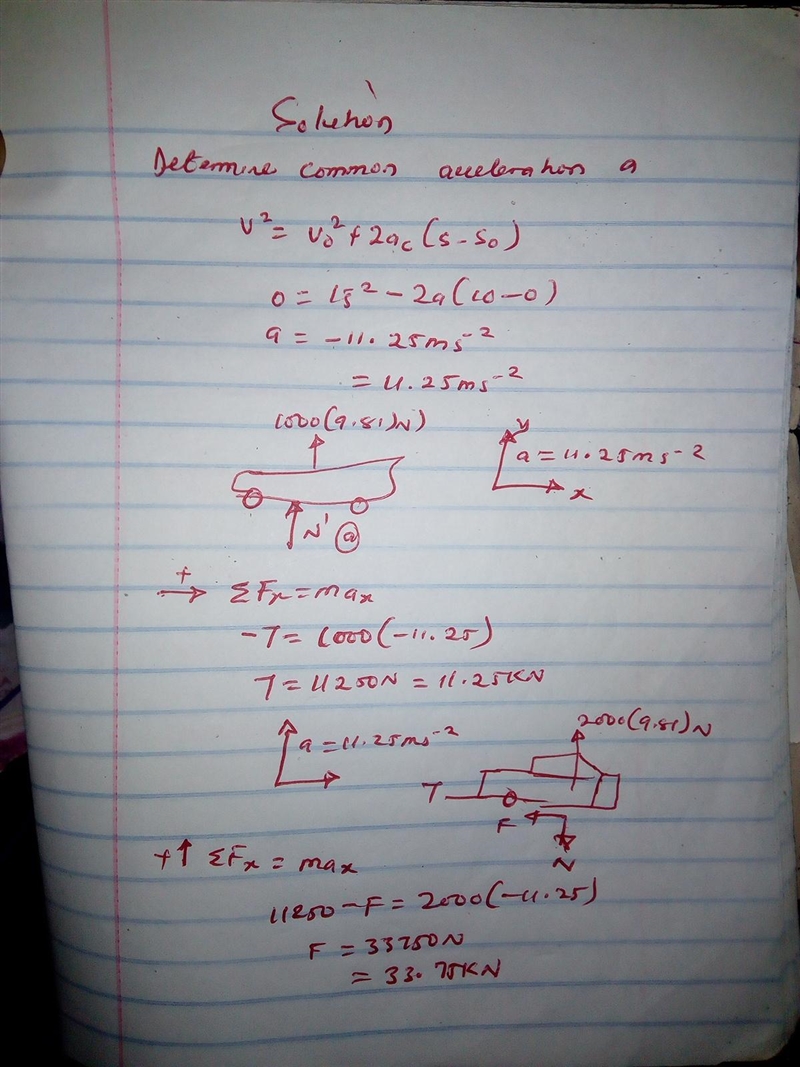 Solution
Determine common acceleration a
v² = v₀² + 2a_c (s - s₀)
0 = 15² - 2a(10 - 0)
a = -11.25ms⁻²
= 11.25ms⁻²
1000(9.81)N)
y
a = 11.25ms⁻²
x
N' a
+ → ΣFx = max
-T = 1000(-11.25)
T = 11250N = 11.25KN
2000(9.81)N
a = 11.25ms⁻²
T
F
N
+↑ ΣFx = max
11250 - F = 2000(-11.25)
F = 33750N
= 33.75KN